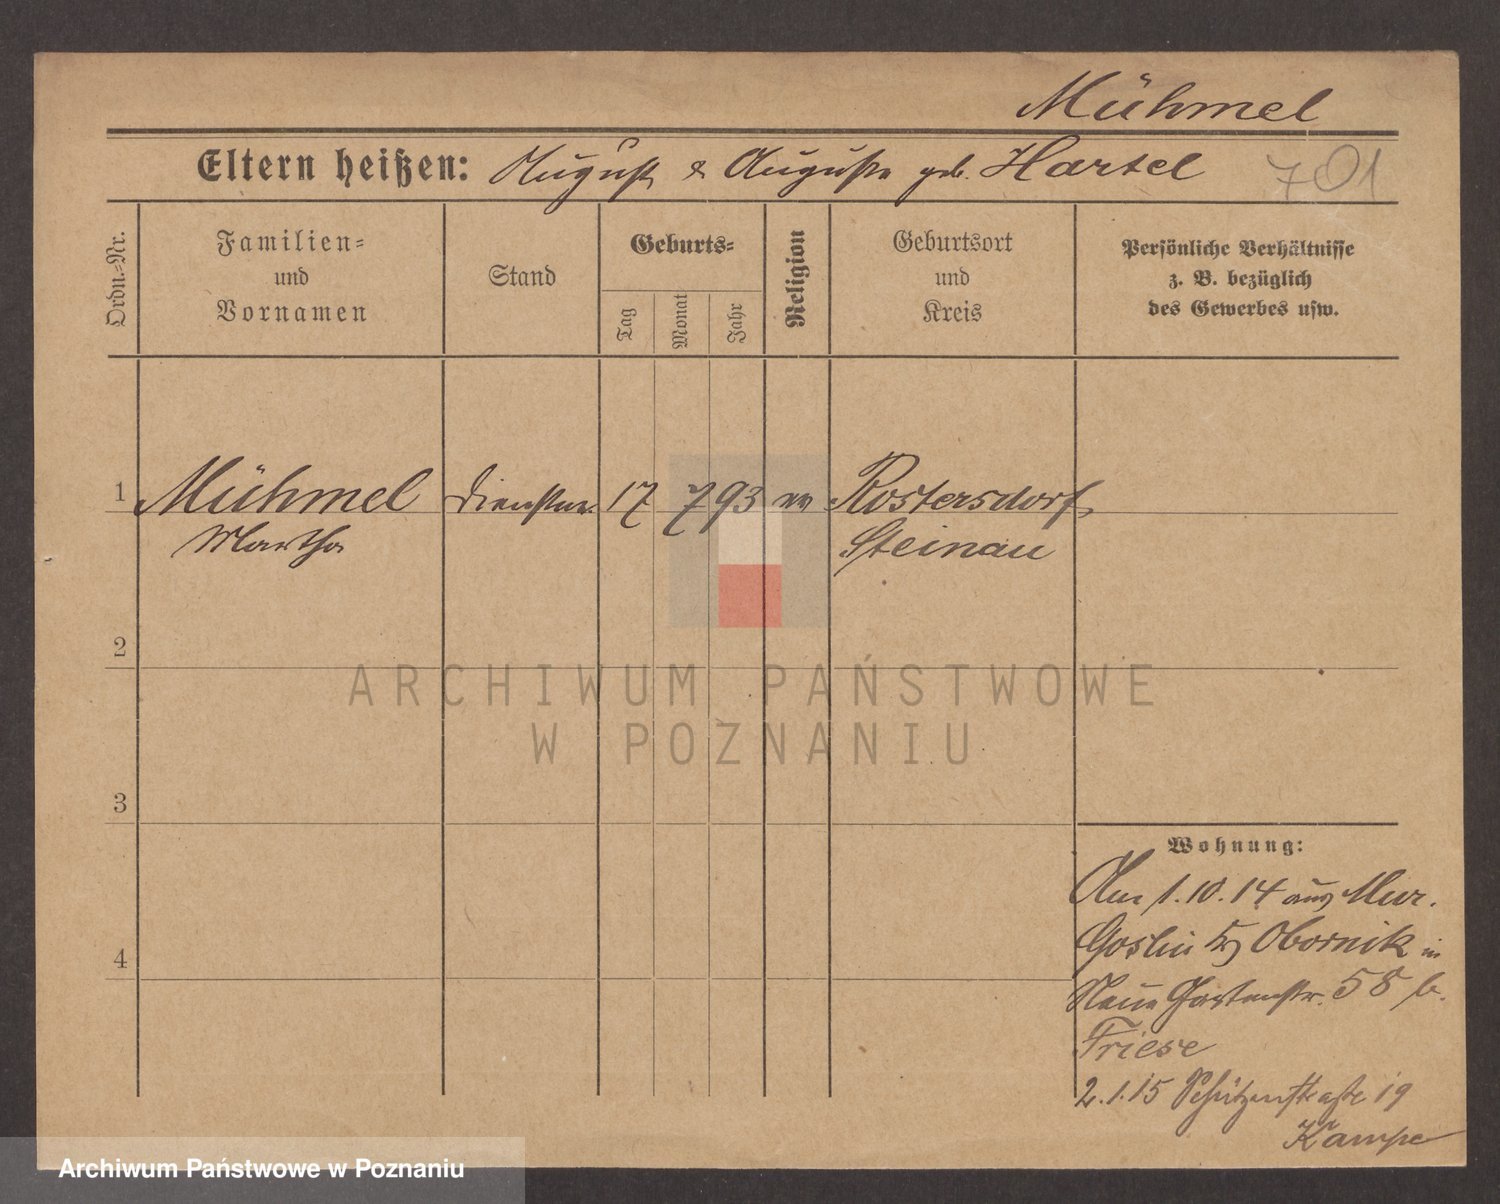 Mühmel
Eltern heißen: August & Auguste geb. Hartel
701
Ordn.-Nr.
Familien-
und
Vornamen
Stand
Geburts-
Tag
Monat
Jahr
Religion
Geburtsort
und
Kreis
Persönliche Verhältnisse
z. B. bezüglich
des Gewerbes usw.
1 Mühmel 17 7 93 ev Rostersdorf,
Martha Steinau
2
3
4
Wohnung:
Am 1.10.14 aus Mur.
Goslin Obornik in
Neue Gartenstr. 58 b.
Friese
2.1.15 Schützenstraße 19
Kampe
ARCHIWUM PAŃSTWOWE
W POZNANIU
Archiwum Państwowe w Poznaniu